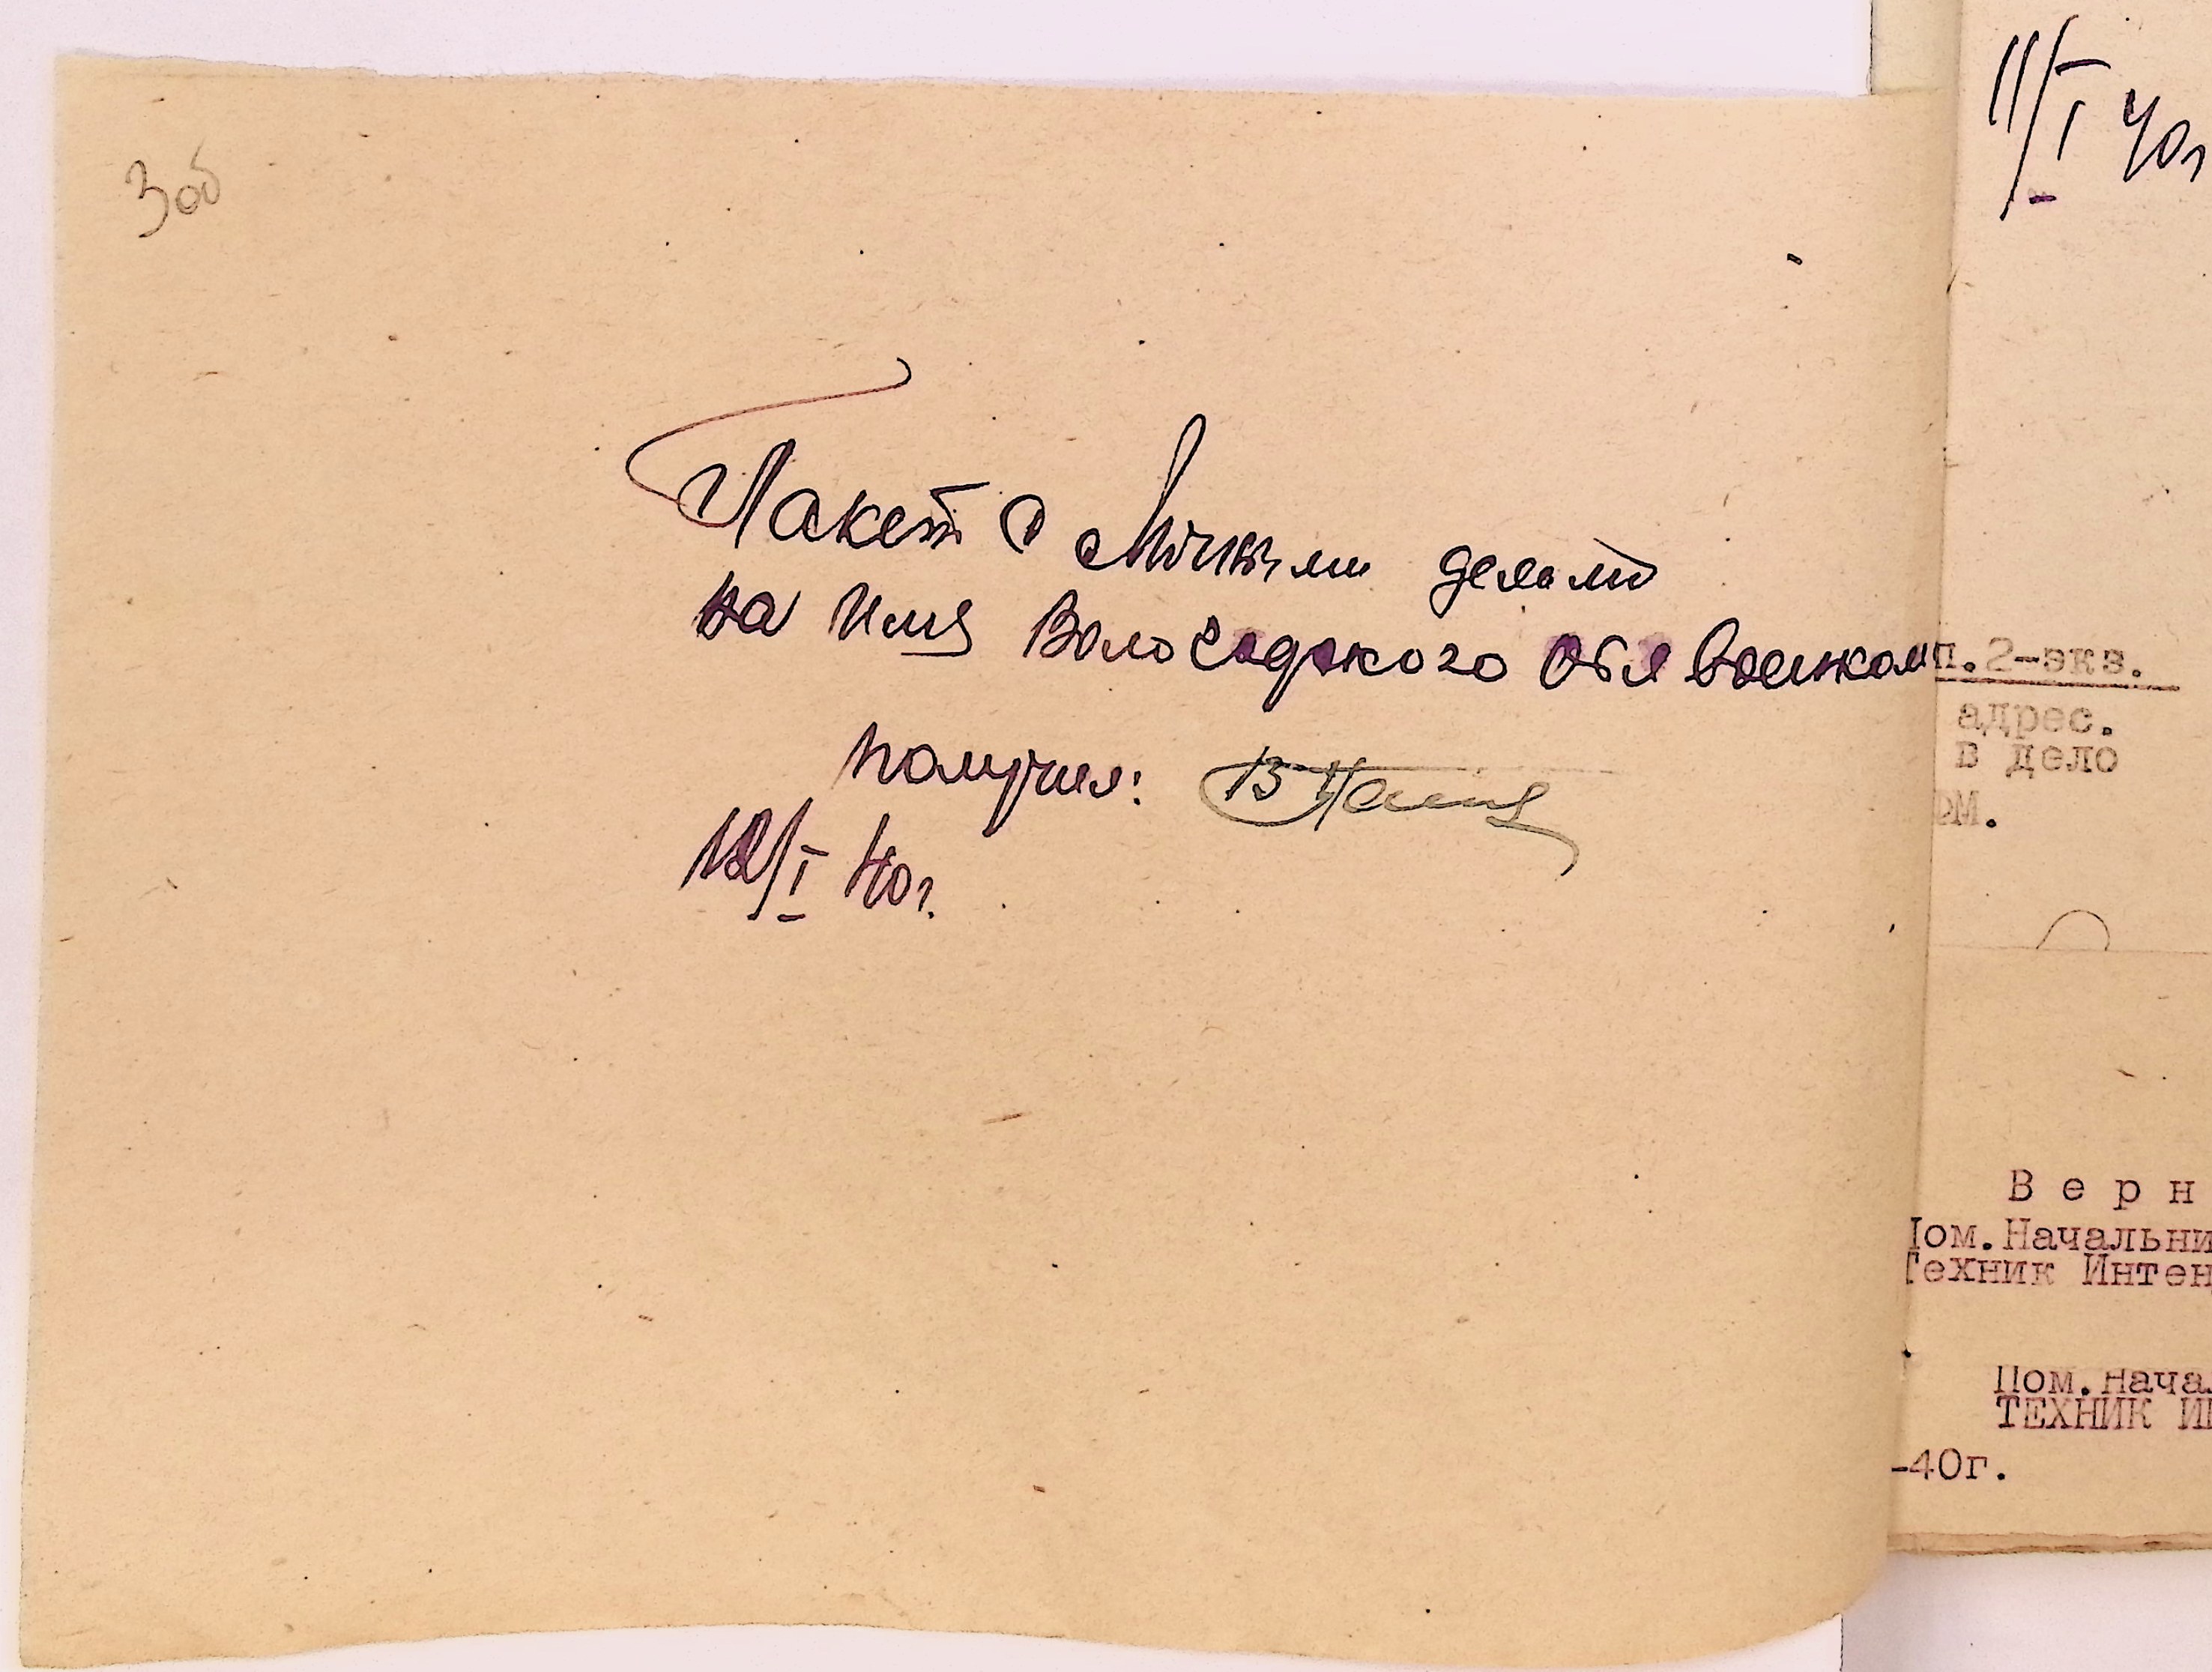 3об
Пакет с личными делами
на имя Вологодского Облвоенком
получил:
12/I 40г.
11/I 40г
п. 2-экз.
адрес.
в дело
ом.
Верн
Пом. Начальни
Техник Интен
Пом. Нача
ТЕХНИК И
-40г.